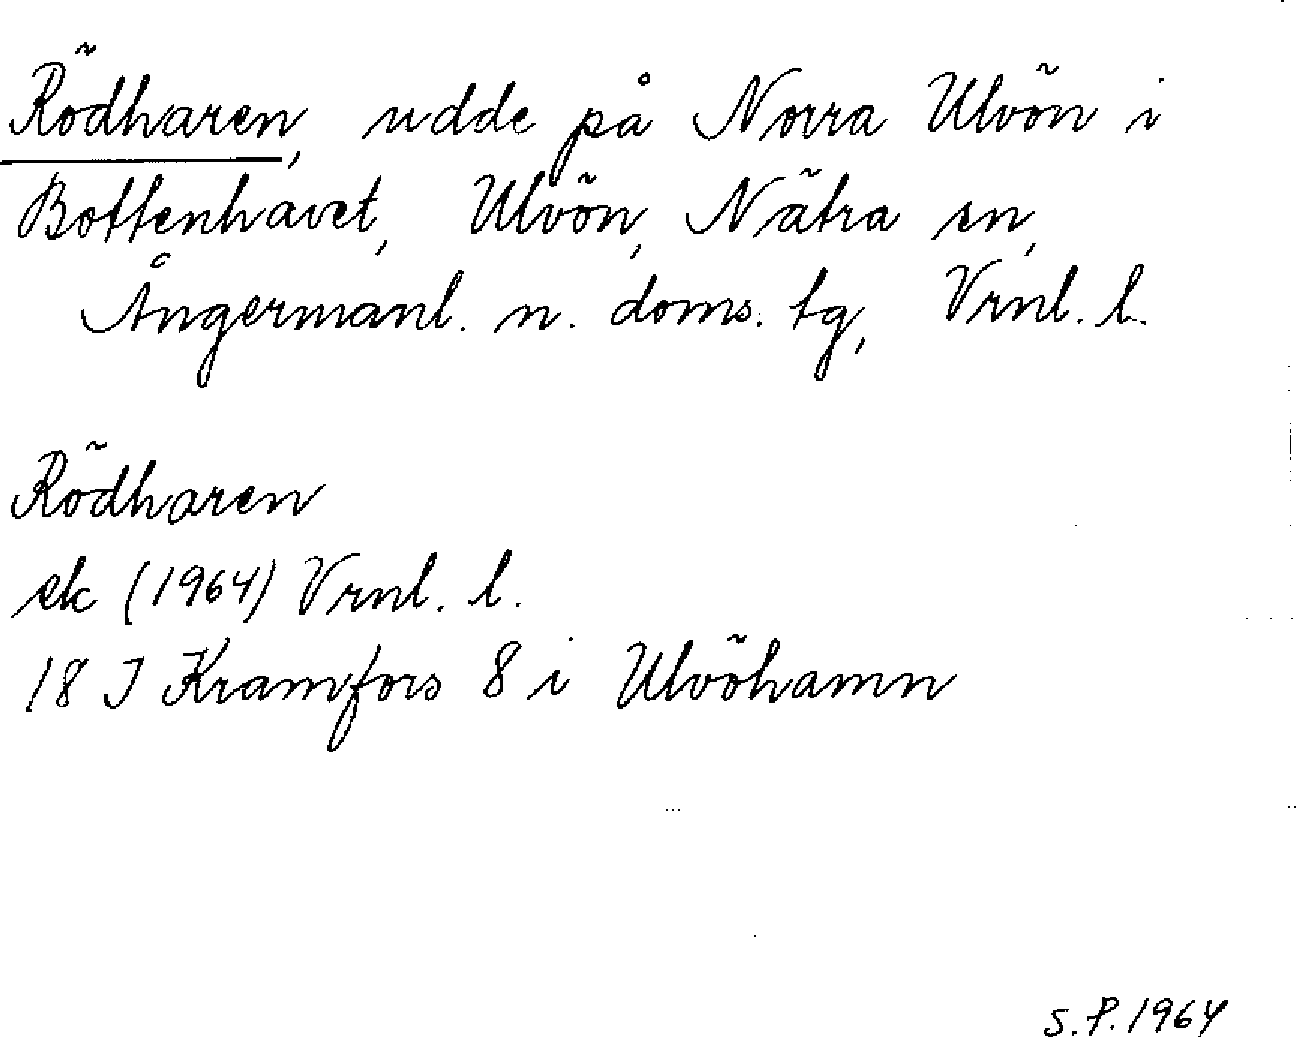 Rödharen, udde på Norra Ulvön i
Bottenhavet, Ulvön, Nätra sn,
Ångermanl. n. doms. tg, Vrnl. l.
Rödharen
ek (1964) Vrnl. l.
18 I Kramfors 8 i Ulvöhamn
S.P. 1964